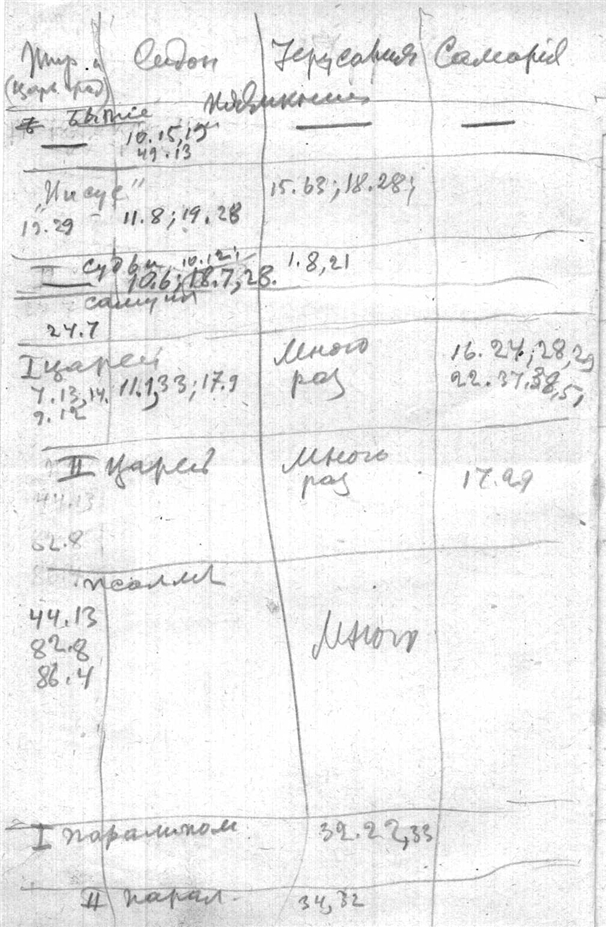 Тир. Сидон Иерусалим Самарія
(Царь град)
Бытіе
— 10.15,19 — —
49.13
„Иисус" 15.63; 18.28;
19.29 11.8; 19.28
Судьи 10.12; 1.8,21
— 10.6; 18.7,28.
Самуил
24.7
I Царей Много 16.24; 28,29
7.13,14. 11.1,33; 17.9 раз 22.37,38,51
9.12
II Царей Много
44.13 раз 17.29
82.8
псалмы
44.13
82.8 Много
86.4
I паралипом. 32.22,33
II парал. 34,32